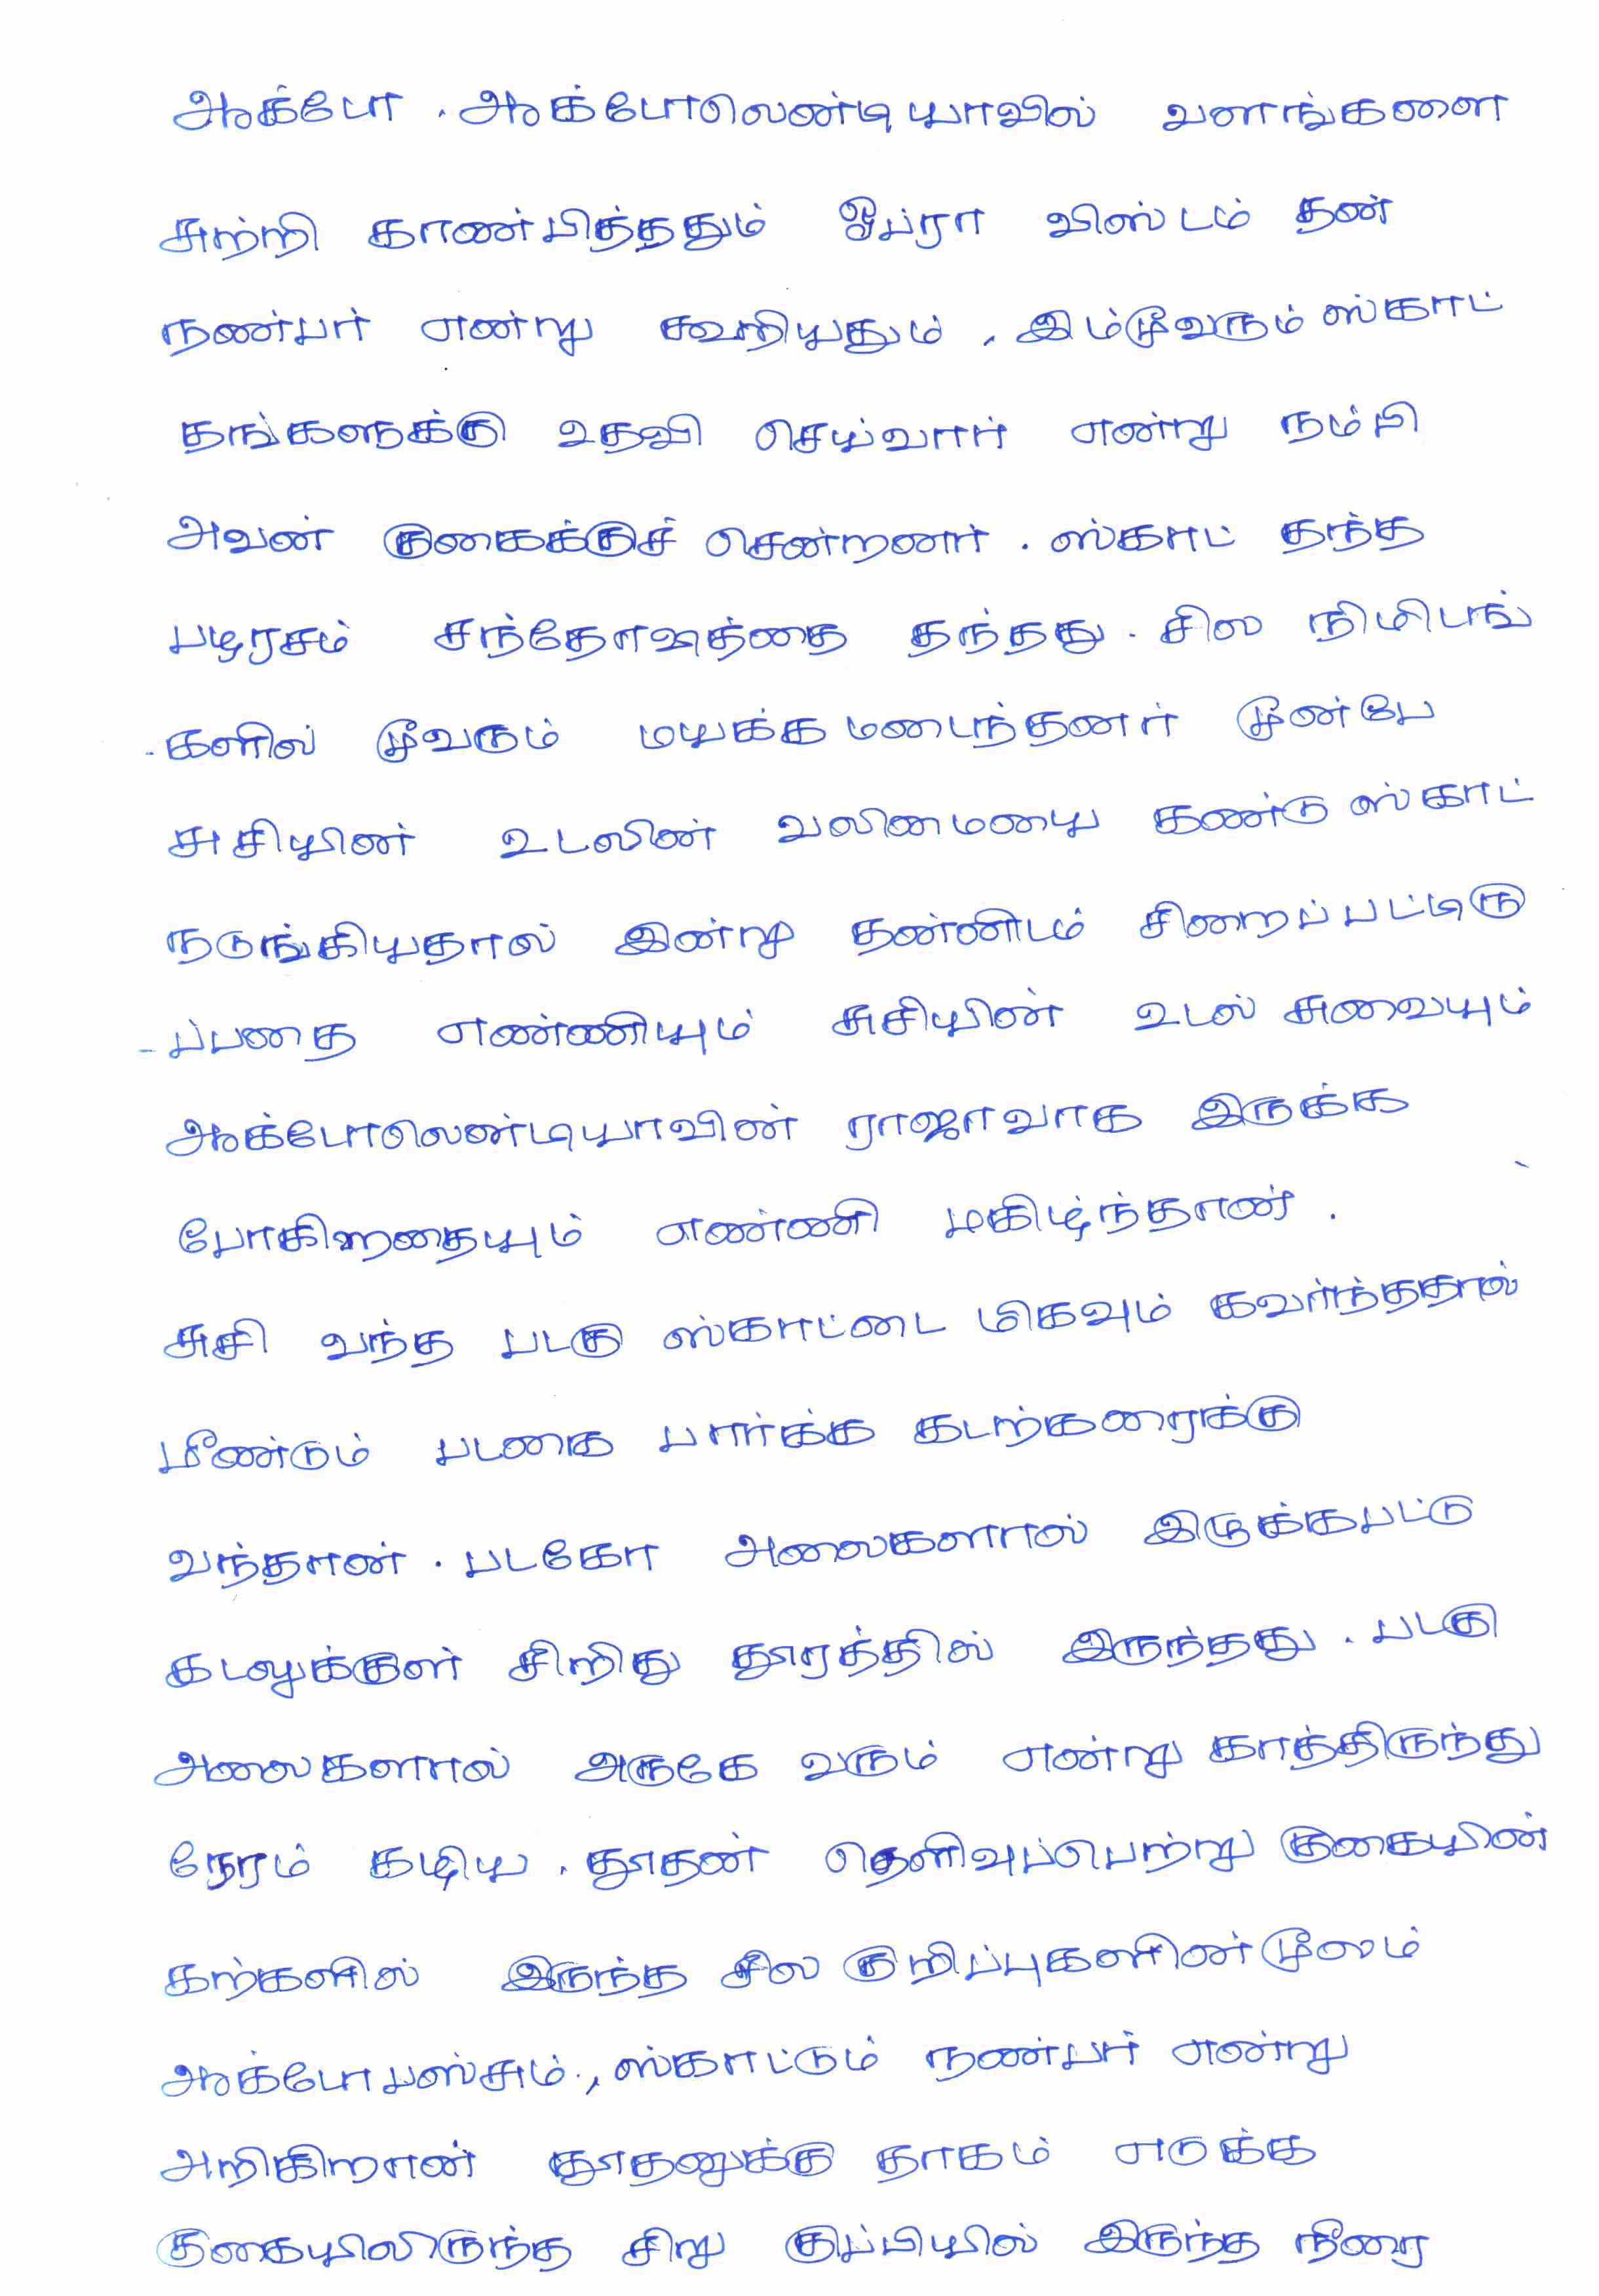 ஆக்போ . ஆக்போலெண்டியாவில் வளங்களை
சுற்றி காண்பித்ததும் ஓப்ரா விஸ்டம் தன்
நண்பர் என்று கூறியதும் , இம்மூவரும் ஸ்காட்
தங்களுக்கு உதவி செய்வார் என்று நம்பி
அவன் குகைக்குச் சென்றனர் . ஸ்காட் தந்த
பழரசம் சந்தோஷத்தை தந்தது . சில நிமிடங்
- களில் மூவரும் மயக்கமடைந்தனர் முன்பே
சுசியின் உடலின் வலிமையை கண்டு ஸ்காட்
நடுங்கியதால் இன்று தன்னிடம் சிறைப்பட்டிரு
- ப்பதை எண்ணியும் சுசியின் உடல் சுவையும்
ஆக்போலெண்டியாவின் ராஜாவாக இருக்க
போகிறதையும் எண்ணி மகிழ்ந்தான் .
சுசி வந்த படகு ஸ்காட்டை மிகவும் கவர்ந்ததால்
மீண்டும் படகை பார்க்க கடற்கரைக்கு
வந்தான் . படகோ அலைகளால் இழுக்கபட்டு
கடலுக்குள் சிறிது தூரத்தில் இருந்தது . படகு
அலைகளால் அருகே வரும் என்று காத்திருந்து
நேரம் கழிய , தூதன் தெளிவுப்பெற்று குகையின்
கற்களில் இருந்த சில குறிப்புகளின் மூலம்
ஆக்போபஸ்சும் , ஸ்காட்டும் நண்பர் என்று
அறிகிறான் தூதனுக்கு தாகம் எடுக்க
குகையிலிருந்த சிறு குப்பியில் இருந்த நீரை